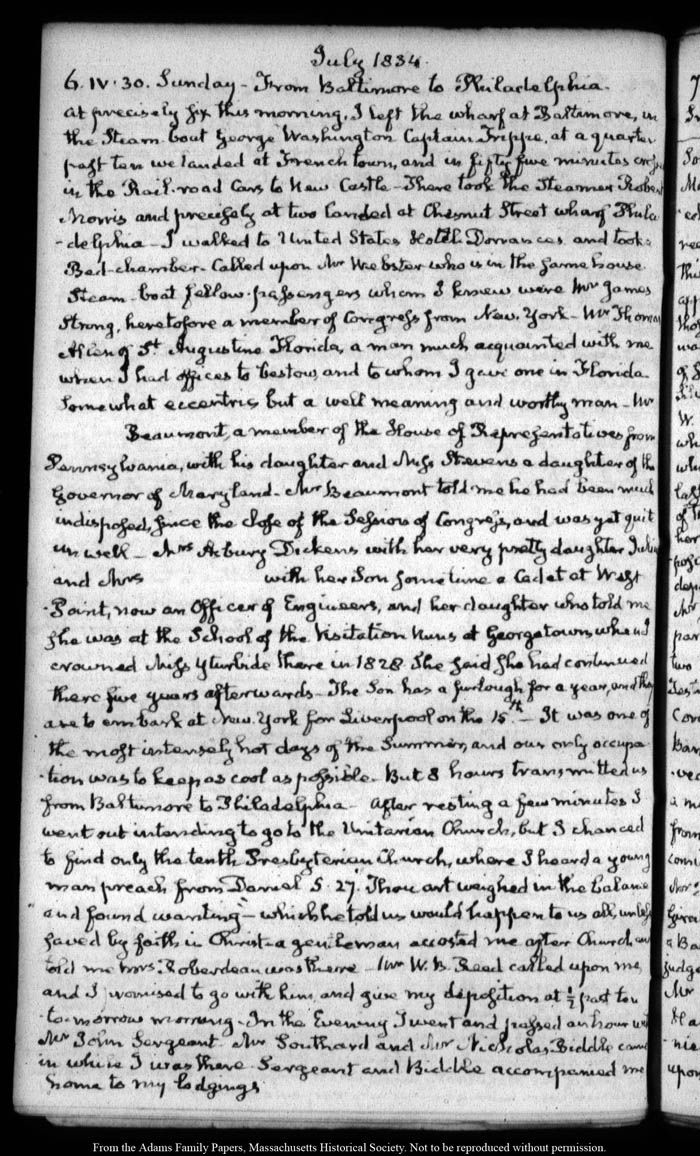 July 1834.
6. IV. 30. Sunday - From Baltimore to Philadelphia.
At precisely six this morning, I left the wharf at Baltimore, in
the Steam-boat George Washington Captain Trippe, at a quarter
past ten we landed at French town, and in fifty five minutes
in the Rail-road Cars to New Castle - There took the Steamer Robert
Morris and precisely at two landed at Chesnut Street wharf Phila
-delphia - I walked to United States Hotel. Dorrances. and took a
Bed-chamber. Called upon Mr Webster who is in the same house.
Steam-boat fellow-passengers whom I knew were Mr James
Strong, heretofore a member of Congress from New-York - Mr Thomas
Allen of St. Augustine Florida, a man much acquainted with me
when I had offices to bestow, and to whom I gave one in Florida.
Somewhat eccentric but a well meaning and worthy man - Mr
Beaumont, a member of the House of Representatives from
Pennsylvania, with his daughter and Miss Stevens a daughter of the
Governor of Maryland. Mr Beaumont told me he had been much
indisposed, since the close of the Session of Congress, and was yet quit
unwell - Mrs Asbury Dickens with her very pretty daughter Julia
and Mrs with her Son sometime a Cadet at West
-Point, now an Officer of Engineers, and her daughter who told me
she was at the School of the Visitation Nuns at Georgetown, when I
crowned Miss Yturbide there in 1828. She said she had continued
there five years afterwards - The Son has a furlough for a year, and they
are to embark at New-York for Liverpool on the 15th. - It was one of
the most intensely hot days of the Summer, and our only occupa
-tion was to keep as cool as possible. But 8 hours transmitted us
from Baltimore to Philadelphia - After resting a few minutes I
went out intending to go to the Unitarian Church, but I chanced
to find only the tenth Presbyterian Church, where I heard a young
man preach from Daniel 5. 27. Thou art weighed in the balance
"and found wanting" - which he told us would happen to us all, unless
saved by faith in Christ - a gentleman accosted me after Church and
told me Mrs. Roberdeau was there - Mr W. B. Reed called upon me,
and I promised to go with him, and give my deposition at ½ past ten
to-morrow morning - In the Evening I went and passed an hour with
Mr John Sergeant. Mr Southard and Mr Nicholas Biddle came
in while I was there - Sergeant and Biddle accompanied me
home to my lodgings
From the Adams Family Papers, Massachusetts Historical Society. Not to be reproduced without permission.